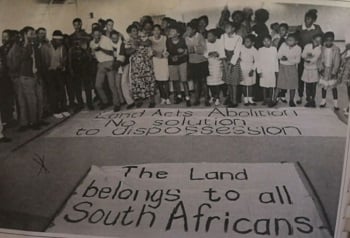 Land Acts Abolition
No solution
to dispossession
The Land
belongs to all
South Africans